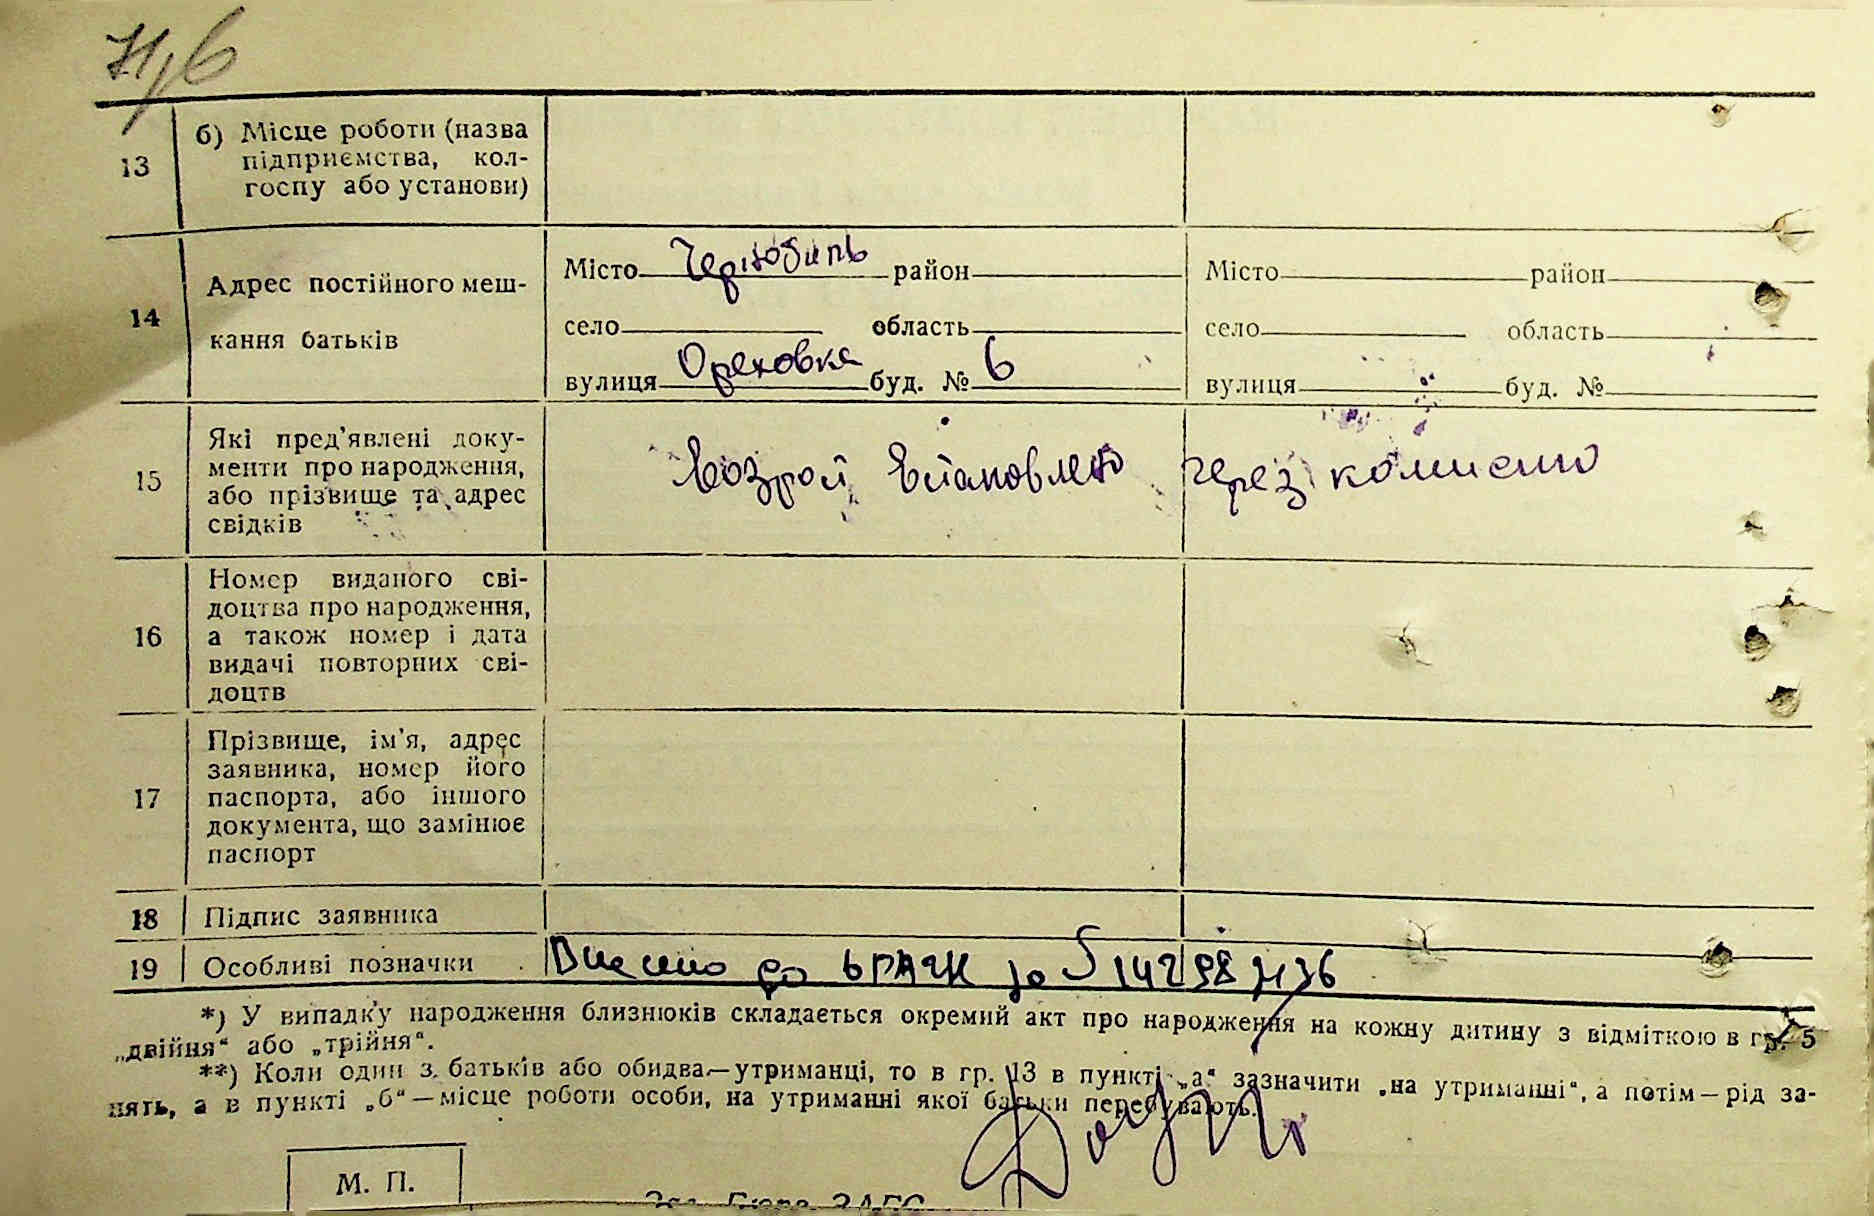 13 б) Місце роботи (назва
підприємства, кол-
госпу або установи)
14 Адрес постійного меш-
кання батьків
Місто Чернобиль район
село область
вулиця Ореховка буд. № 6
Місто район
село область
вулиця буд. №
15 Які пред'явлені доку-
менти про народження,
або прізвище та адрес
свідків
Возрост встановлено через комисию
16 Номер виданого сві-
доцтва про народження,
а також номер і дата
видачі повторних сві-
доцтв
17 Прізвище, ім'я, адрес
заявника, номер його
паспорта, або іншого
документа, що замінює
паспорт
18 Підпис заявника
19 Особливі позначки Внесено до ДРАЦС за
*) У випадку народження близнюків складається окремий акт про народження на кожну дитину з відміткою в гр. 5
„двійня“ або „трійня“.
**) Коли один з батьків або обидва—утриманці, то в гр. 13 в пункті „а“ зазначити „на утриманні“, а потім—рід за-
нять, а в пункті „б“—місце роботи особи, на утриманні якої батьки перебувають.
М. П.
Зав. Бюро ЗАГС